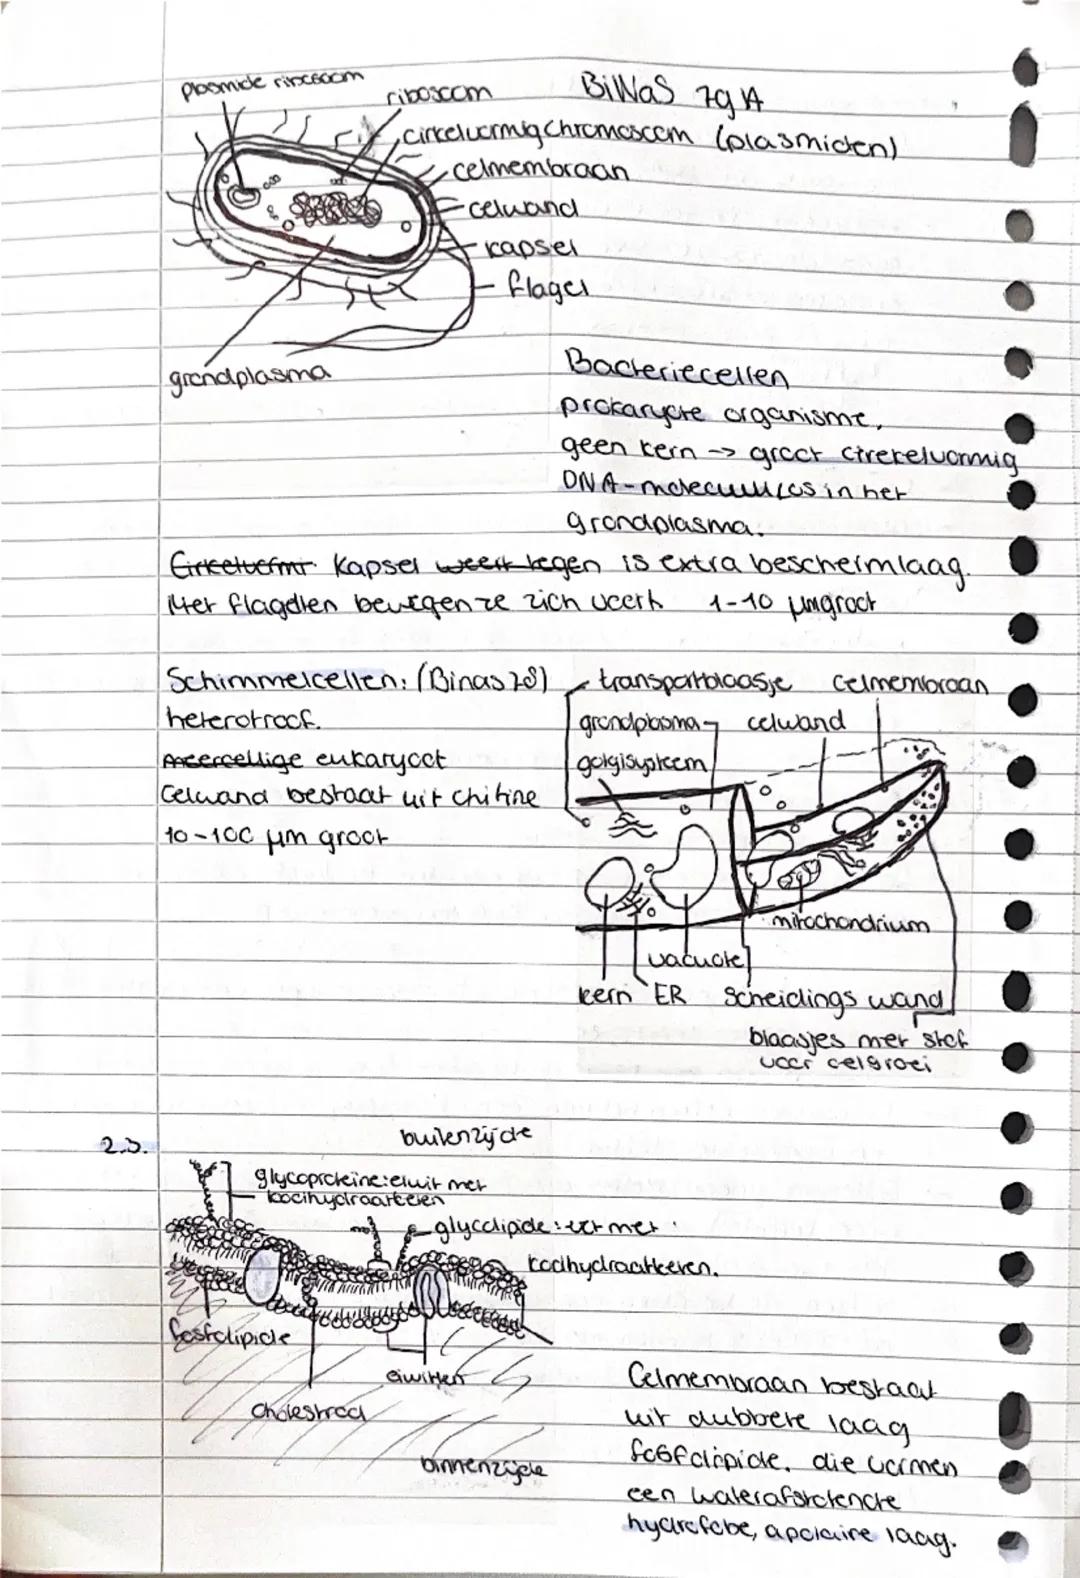 plasmide ribosoom
ribosoom
BiNaS 79 A
cirkelvormig chromosoom (plasmiden)
celmembraan
celwand
kapsel
flagel
grondplasma
Bacteriecellen
prokaryote organisme,
geen kern -> groot cirekelvormig
DNA-moleculles in het
grondplasma.
Cirkelvormi Kapsel weert tegen is extra beschermlaag.
Met flagellen bewegen ze zich voort 1-10 µm groot
Schimmelcellen: (Binas 78)
heterotroof.
meercellige eukaryoot
Celwand bestaat uit chitine
10-100 µm groot
transportblaasje celmembraan
grondplasma celwand
golgisysteem
mitochondrium
vacuole
kern ER Scheidings wand
blaasjes met stof
voor celgroei
2.3.
buitenzijde
glycoproteine: eiwit met
koolhydraatketen
glycolipide: vet met
koolhydraatketen.
fosfolipide
eiwitten
cholestrool
binnenzijde
Celmembraan bestaat
uit dubbele laag
fosfolipide. die vormen
een waterafstotende
hydrofobe, apolaire laag.